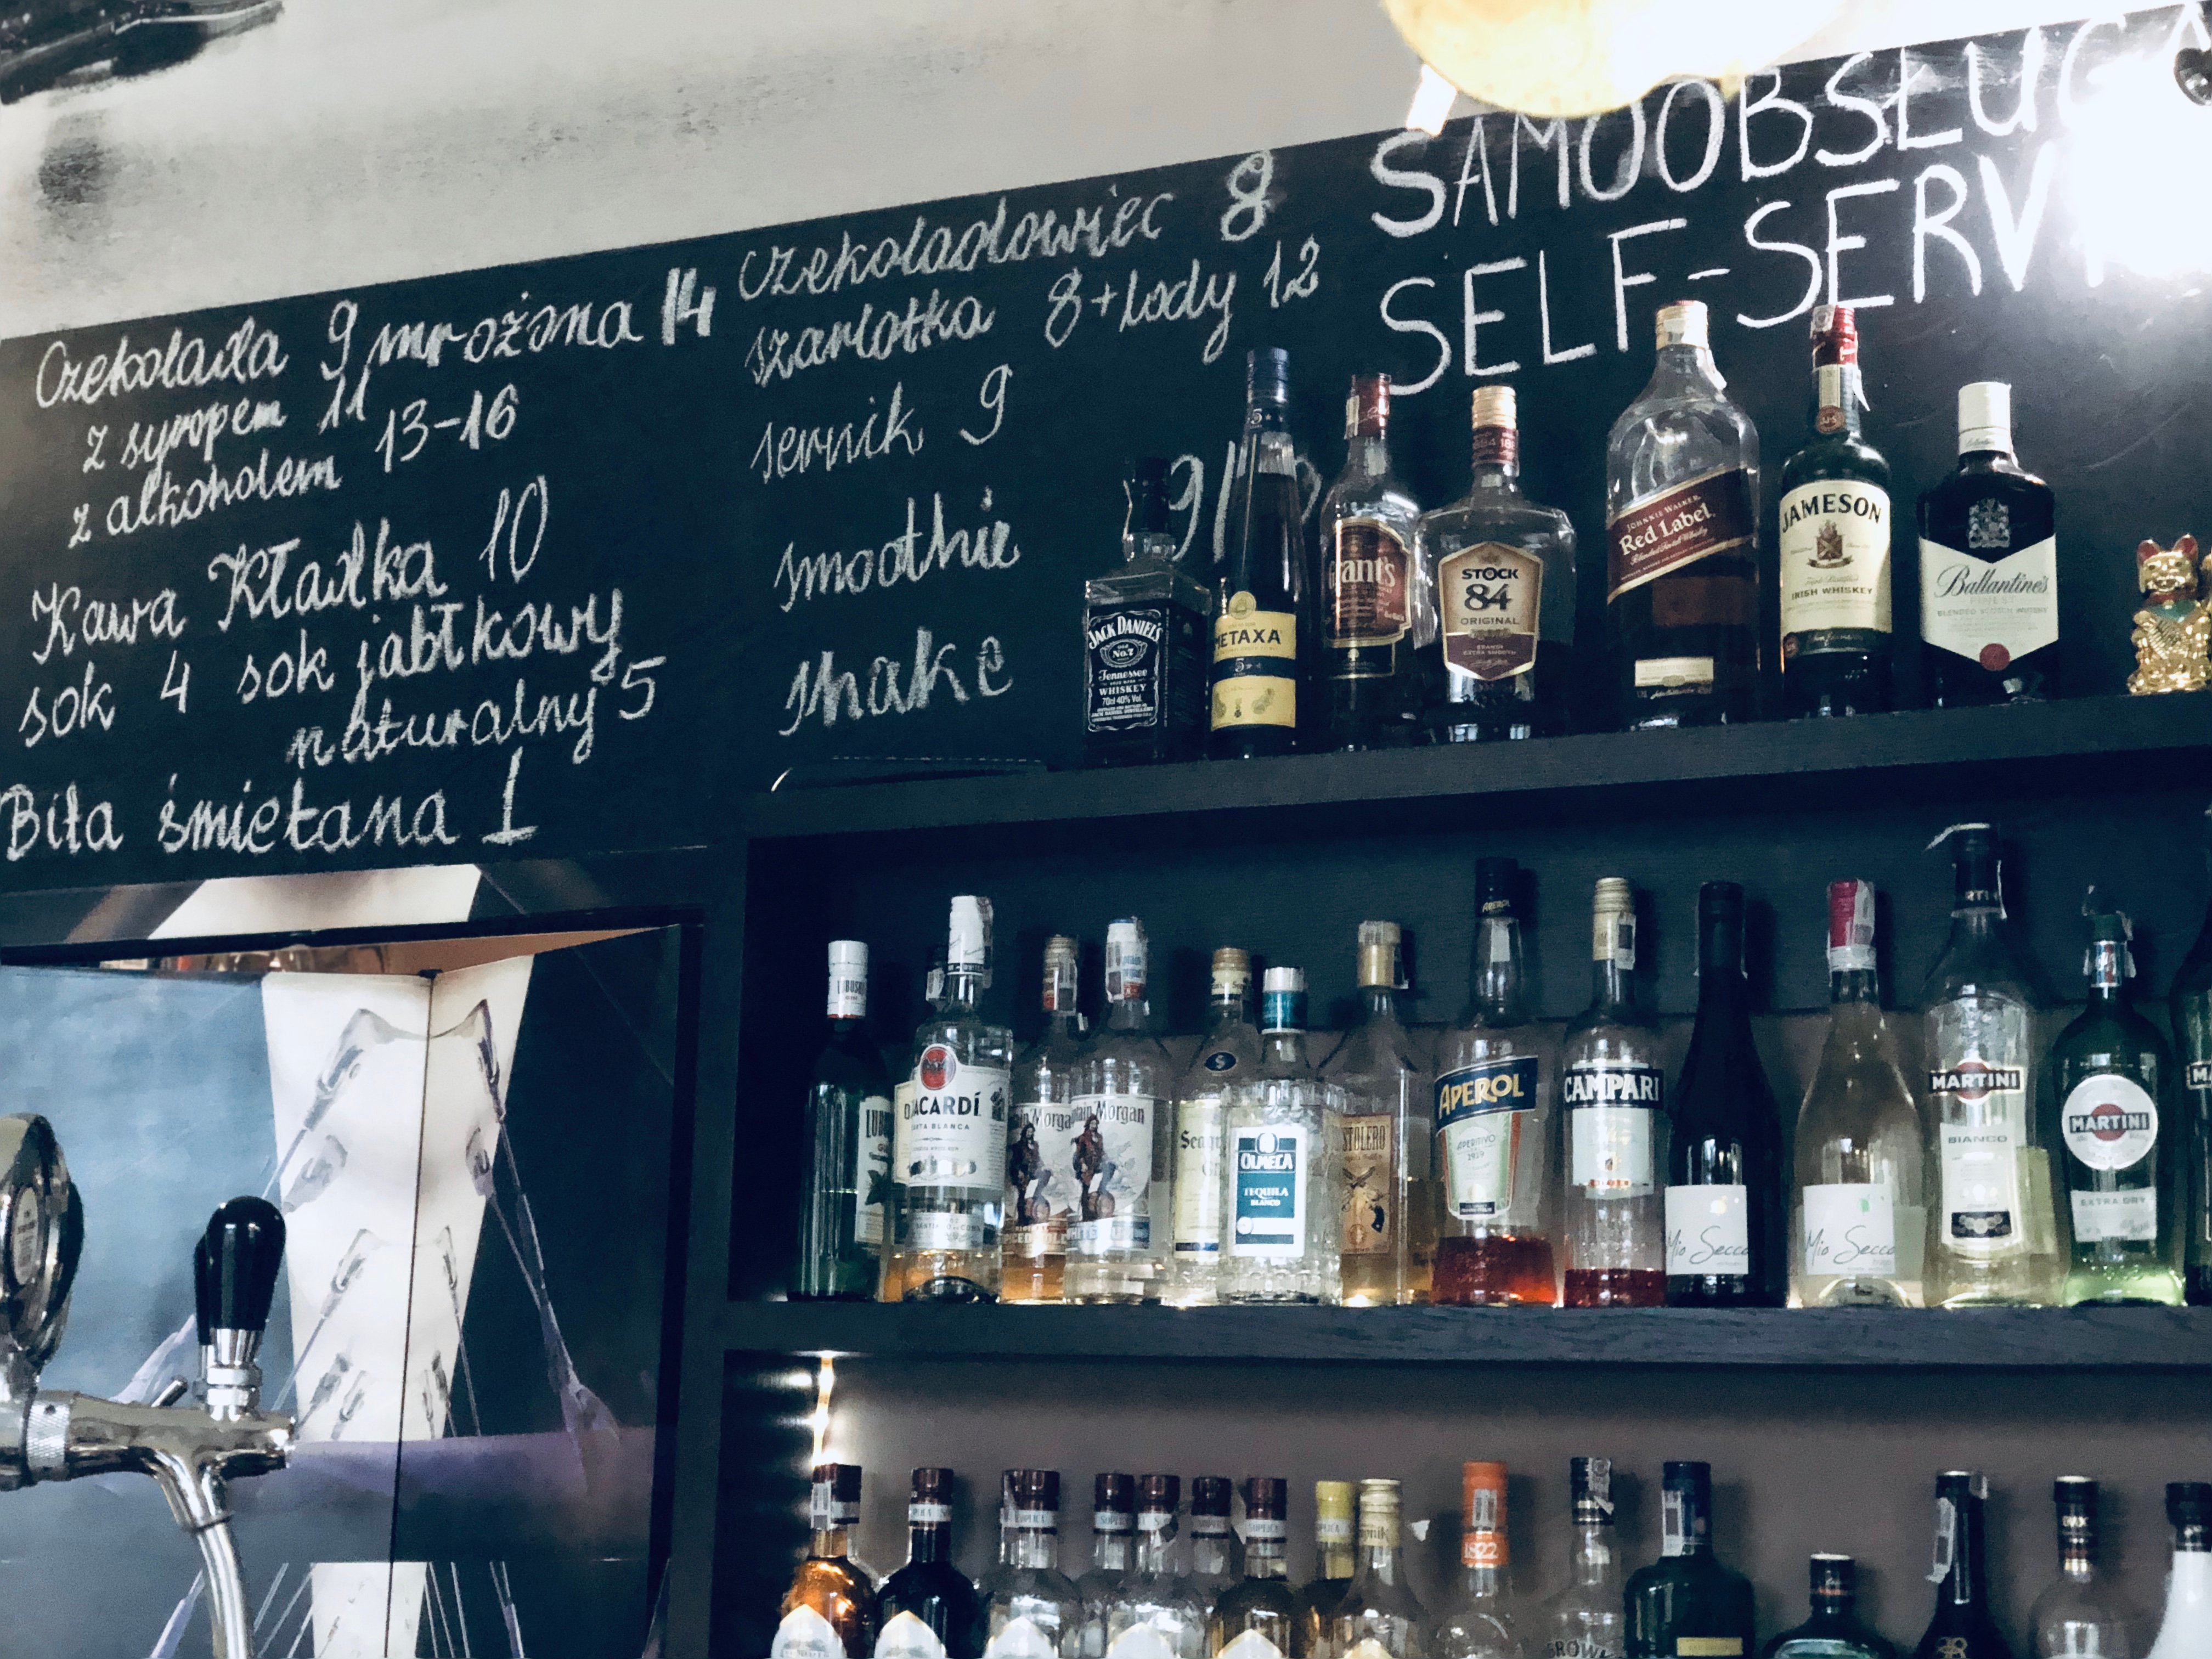 Czekolada 9 mrożona 14
z syropem 11
z alkoholem 13-16
Kawa Kładka 10
sok 4 sok jabłkowy
naturalny 5
Bita śmietana 1
Czekoladowiec 8
szarlotka 8+lody 12
sernik 9
smoothie
shake
SAMOOBSŁUGA
SELF-SERV
JACK DANIEL'S
OLD
No.7
Tennessee
WHISKEY
70cl 40% Vol.
METAXA
5
Grant's
STOCK
84
ORIGINAL
JOHNNIE WALKER
Red Label
Blended Scotch Whisky
JAMESON
IRISH WHISKEY
Ballantine's
FINEST
BLENDED SCOTCH WHISKY
BACARDÍ
CARTA BLANCA
Morgan
SPICED
Captain Morgan
WHITE
OLMECA
TEQUILA
BLANCO
STOLERO
APEROL
APERITIVO
1919
CAMPARI
Mio Secco
Mio Secco
MARTINI
BIANCO
MARTINI
EXTRA DRY
1822